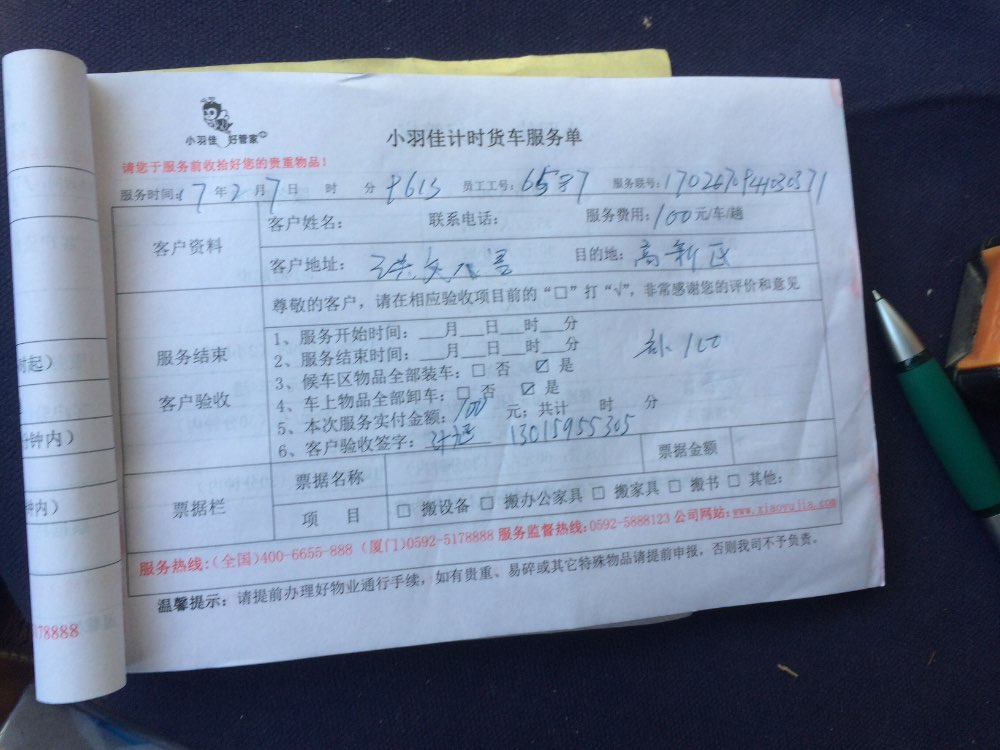 小羽佳 好管家
小羽佳计时货车服务单
请您于服务前收拾好您的贵重物品！
服务时间：17年2月7日 时 分 员工工号： 服务联号：
客户资料
客户姓名： 联系电话： 服务费用：100元/车/趟
客户地址： 目的地：高新区
尊敬的客户，请在相应验收项目前的“□”打“√”，非常感谢您的评价和意见
服务结束
客户验收
1、服务开始时间：___月___日___时___分
2、服务结束时间：___月___日___时___分
3、候车区物品全部装车：□ 否 ☑ 是
4、车上物品全部卸车：□ 否 ☑ 是
5、本次服务实付金额：100 元；共计 时 分
6、客户验收签字： 13015955305
100
票据栏
票据名称 票据金额
项 目 □ 搬设备 □ 搬办公家具 □ 搬家具 □ 搬书 □ 其他：
服务热线：(全国)400-6655-888 (厦门)0592-5178888 服务监督热线：0592-5888123 公司网站：www.xiaoyujia.com
温馨提示：请提前办理好物业通行手续，如有贵重、易碎或其它特殊物品请提前申报，否则我司不予负责。
时起）
分钟内）
钟内）
178888